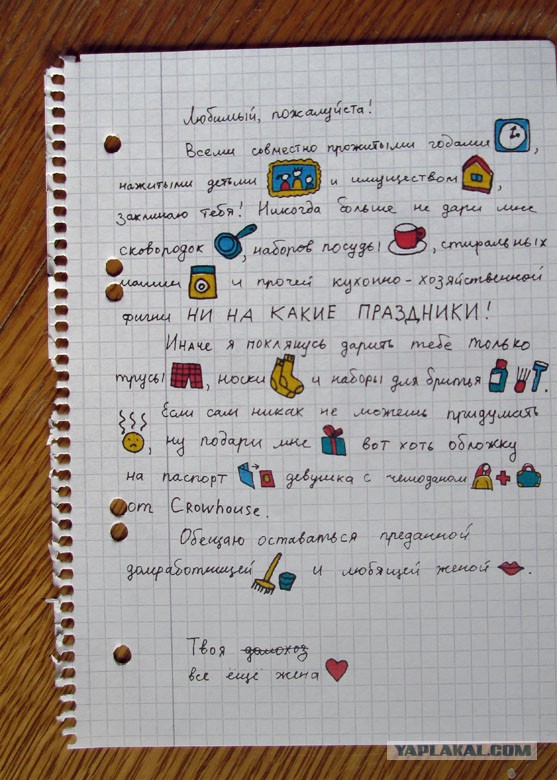 Любимый, пожалуйста!
Всеми совместно прожитыми годами,
нажитыми детьми и имуществом,
заклинаю тебя! Никогда больше не дари мне
сковородок, наборов посуды, стиральных
машин и прочей кухонно-хозяйственной
фигни НИ НА КАКИЕ ПРАЗДНИКИ!
Иначе я поклянусь дарить тебе только
трусы, носки и наборы для бритья.
Если сам никак не можешь придумать
, ну подари мне вот хоть обложку
на паспорт девушка с чемоданом
от Crowhouse.
Обещаю оставаться преданной
домработницей и любящей женой.
Твоя домохоз
все ещё жена
YAPLAKAL.COM